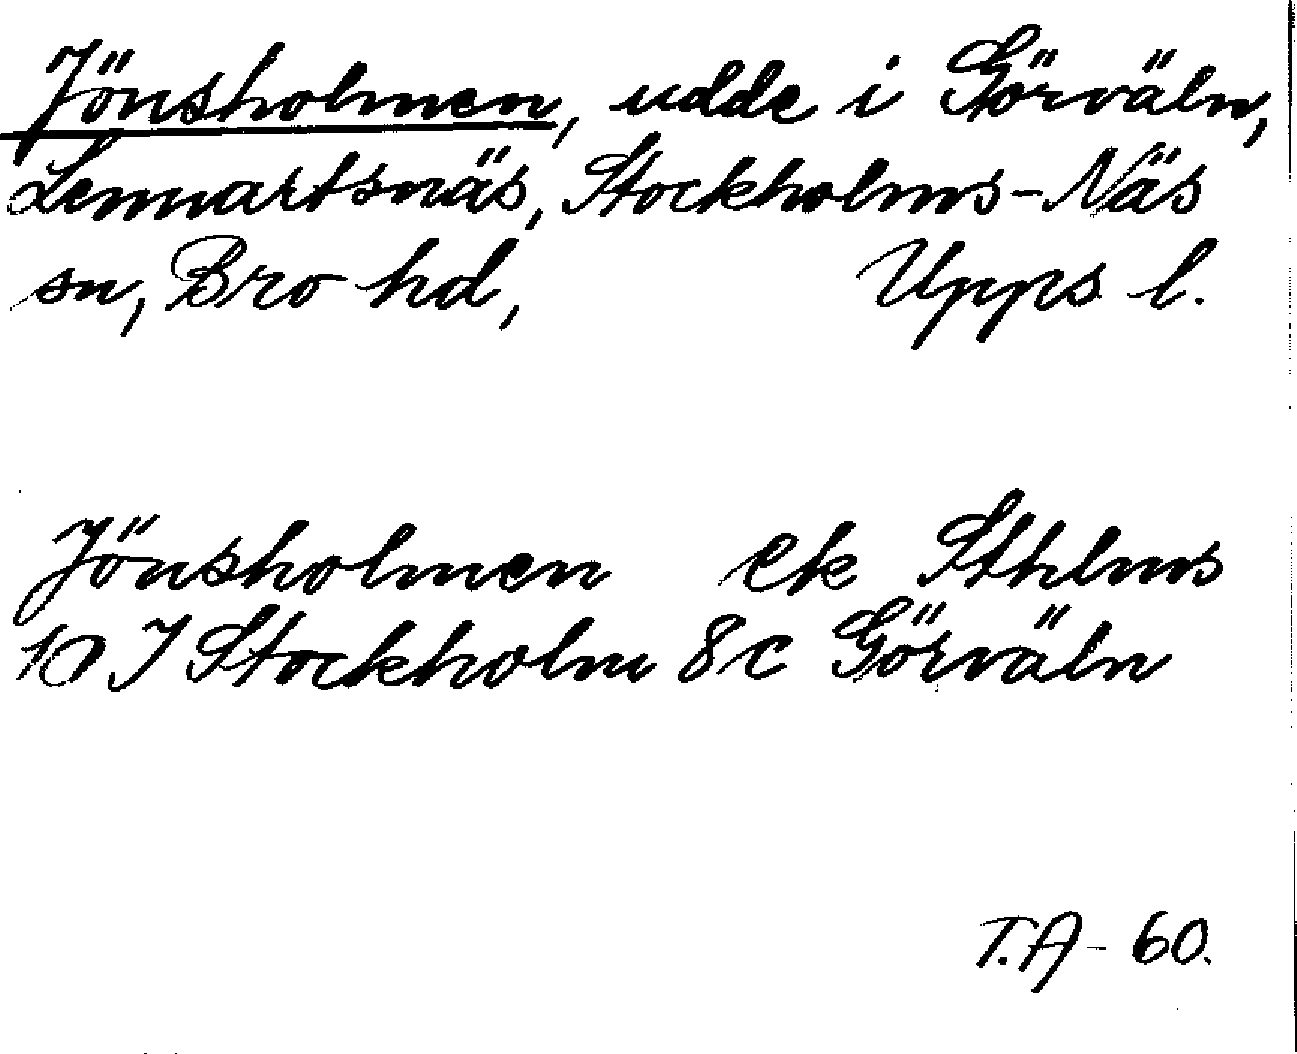 Jönsholmen, udde i Görväln,
Lennartsnäs, Stockholms-Näs
sn, Bro hd, Upps l.
Jönsholmen ek Sthlms
10 I Stockholm 8c Görväln
T.A-60.